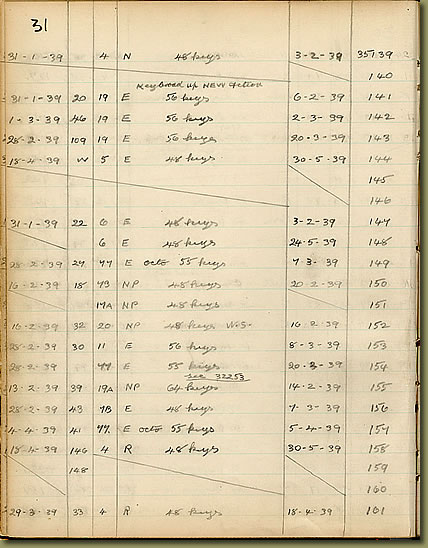 31
31-1-39 4 N 48 keys 3-2-39 35139
140
Keyboard up NEW action
31-1-39 20 19 E 56 keys 6-2-39 141
1-3-39 46 19 E 56 keys 2-3-39 142
28-2-39 109 19 E 56 keys 20-3-39 143
18-4-39 W 5 E 48 keys 30-5-39 144
145
146
31-1-39 22 6 E 48 keys 3-2-39 147
6 E 48 keys 24-5-39 148
28-2-39 27 77 E octo 55 keys 7-3-39 149
16-2-39 18 7B NP 48 keys 20-2-39 150
17A NP 48 keys 151
16-2-39 32 20 NP 48 keys W.S. 16-2-39 152
28-2-39 30 11 E 56 keys 8-3-39 153
28-2-39 77 E 55 keys 20-3-39 154
see 32253
13-2-39 39 19A NP 64 keys 14-2-39 155
28-2-39 43 7B E 48 keys 7-3-39 156
4-4-39 41 77 E octo 55 keys 5-4-39 157
18-4-39 146 4 R 48 keys 30-5-39 158
148 159
160
29-3-39 33 4 R 48 keys 18-4-39 161